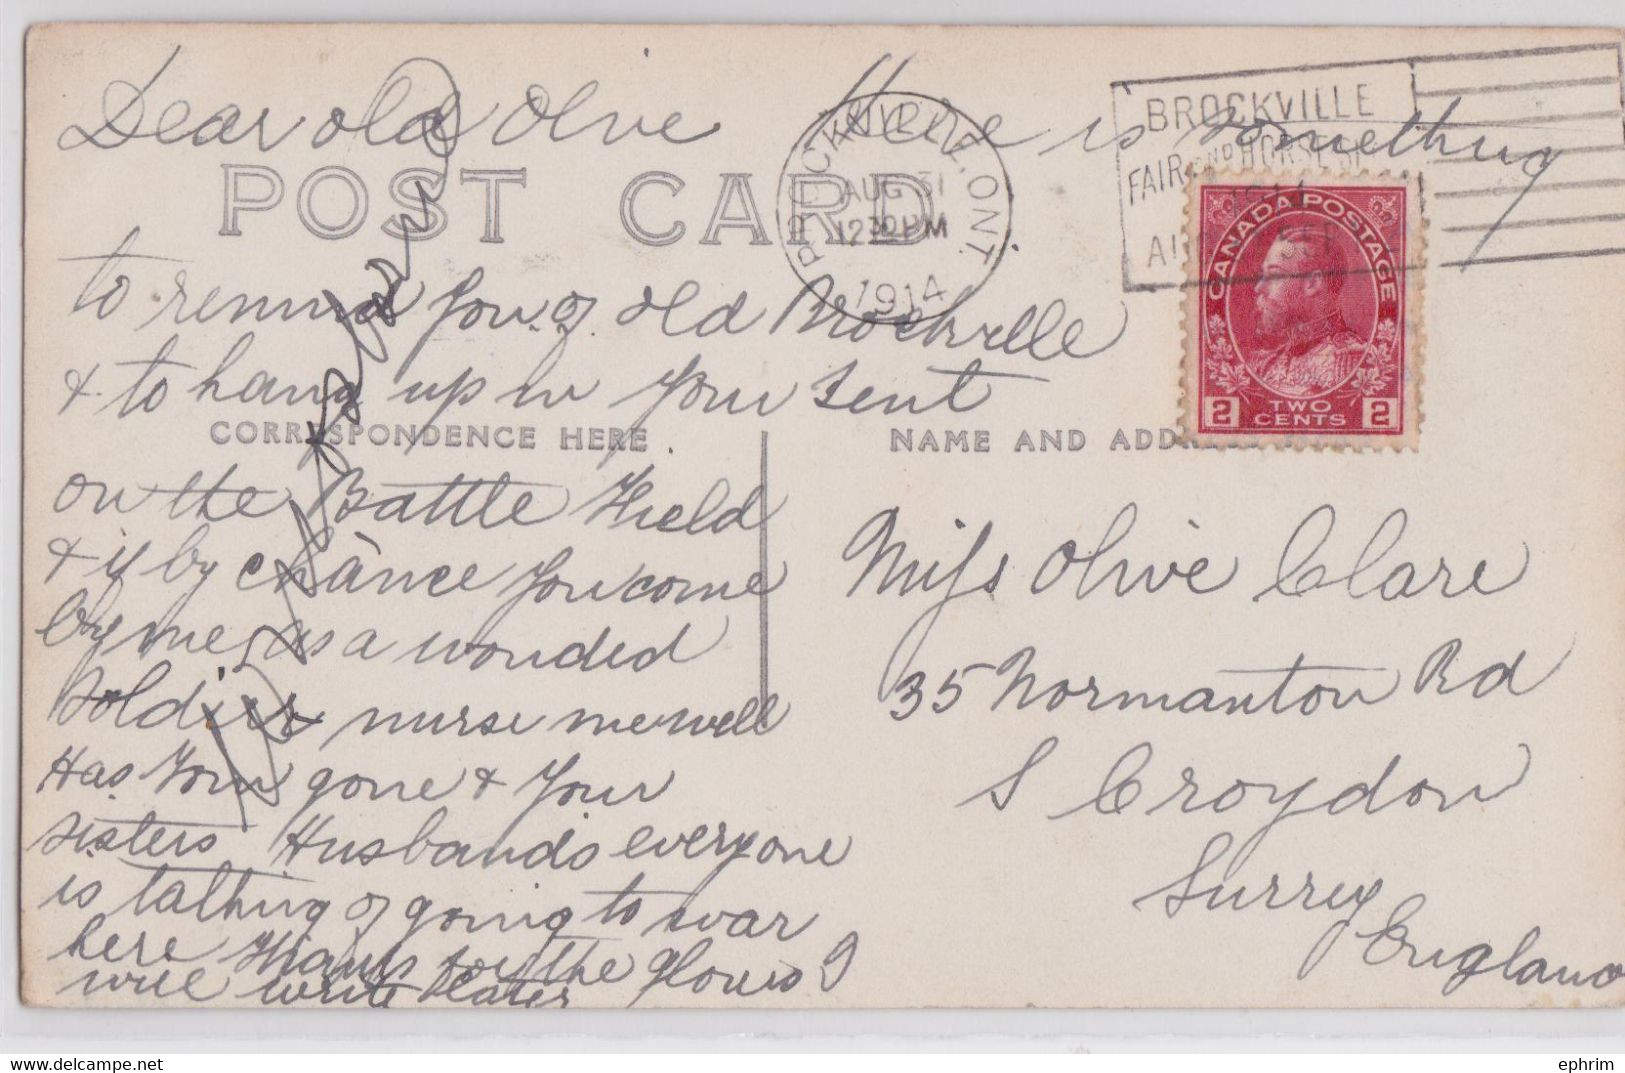 Dear old Olive Here is something
POST CARD
to remind you of old Brockville
& to hang up in your tent
CORRESPONDENCE HERE
on the Battle Field
& if by chànce you come
by me as a wonded
soldier nurse me well
Has Tom gone & your
sisters Husbands everyone
is talking of going to war
here Thanks for the gloves I
will write later
BROCKVILLE, ONT.
AUG 31
12 30 PM
1914
BROCKVILLE
FAIR AND HORSE
1914
CANADA POSTAGE
2 TWO CENTS 2
NAME AND ADDRESS
Miss Olive Clare
35 Normanton Rd
S Croydon
Surrey
England
ephrim